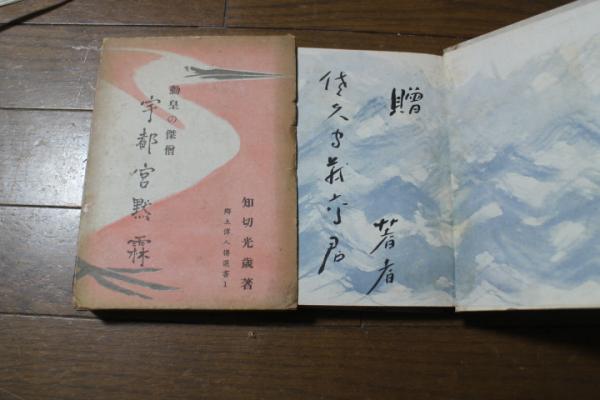 勤皇の傑僧
宇都宮黙霖
知切光歳著
郷土偉人傳選書1
贈
著者
佐久間義亦君